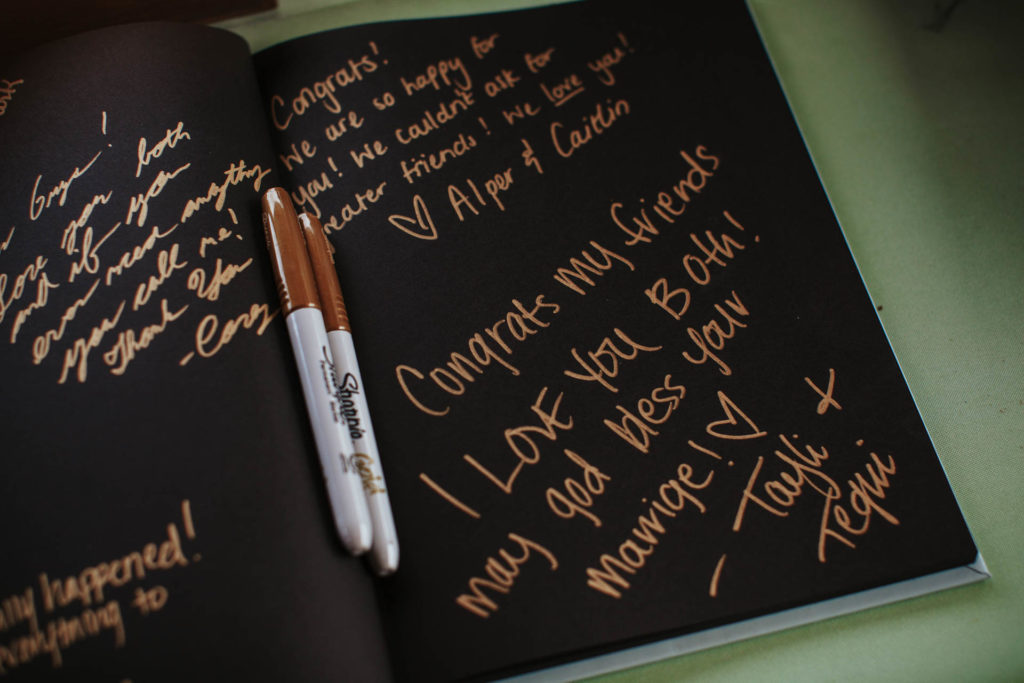 Guys!
Love you both
and if you
ever need anything
you call me!
Thank You
-Corey
happened!
everything to
Congrats!
We are so happy for
you! We couldn't ask for
greater friends! We love you!
♡ Alper & Caitlin
Congrats my friends
I Love You Both!
may god bless your
marrige! ♡
- Tayli x
Tequi
Sharpie